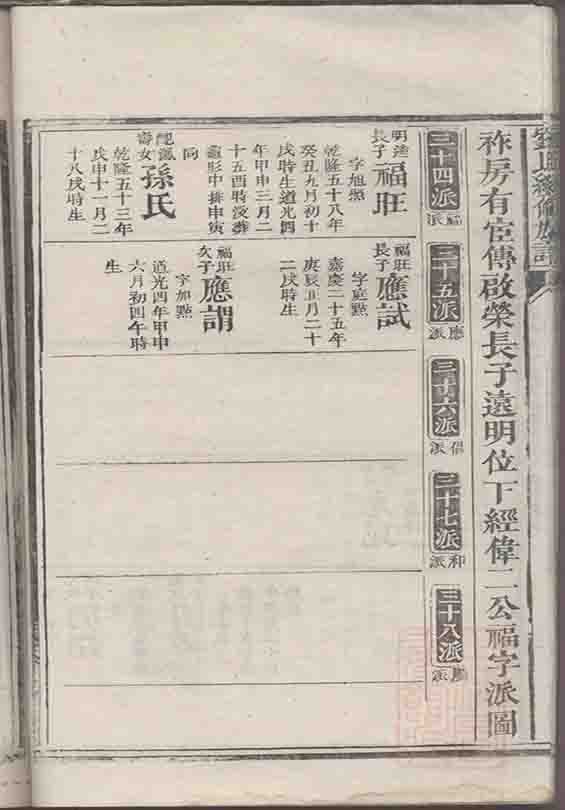 祚房有宦傳啟榮長子遠明位下經偉二公福字派圖
三十四派
福派
三十五派
應派
三十六派
三十七派
和派
三十八派
明達
長子
福旺
字旭照
乾隆五十八年
癸丑九月初十
戌時生道光四
年甲申三月二
十五酉時沒葬
同
配
壽女
孫氏
乾隆五十三年
戊申十一月二
十八戌時生
福旺
長子
應試
字庭點
嘉慶二十五年
庚辰正月二十
二戌時生
福旺
次子
應謂
字如點
道光四年甲申
六月初四午時
生